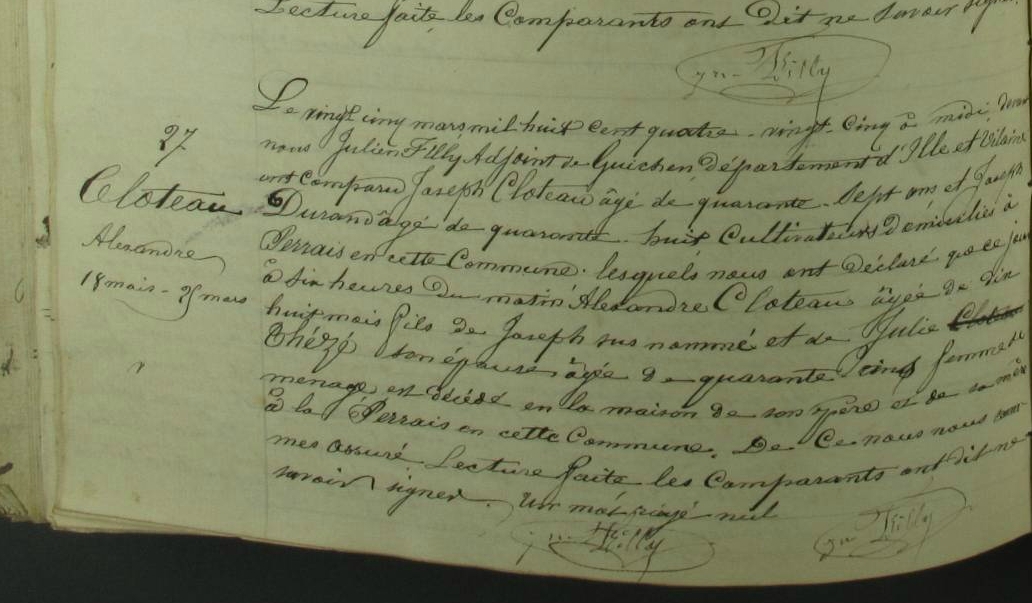 Lecture faite les Comparants ont dit ne savoir signer.
jn. Filly
27
Cloteau
Alexandre
18 mois - 25 mars
Le vingt cinq mars mil huit cent quatre-vingt-cinq à midi, devant
nous Julien Filly Adjoint de Guichen, département d'Ille et Vilaine
ont comparu Joseph Cloteau âgé de quarante-sept ans et Joseph
Durand âgé de quarante-huit Cultivateurs demeurliés à
Perrais en cette Commune, lesquels nous ont déclaré que ce jour
à six heures du matin Alexandre Cloteau âgée de dix
huit mois fils de Joseph sus nommé et de Julie Cloteau
Thézé son épouse âgée de quarante cinq femme de
menage, est décédé en la maison de son père et de sa mère
à la Perrais en cette Commune. De Ce nous nous som-
mes assuré Lecture faite les Comparants ont dit ne
savoir signer. Un mot rayé nul
jn. Filly
jn. Filly